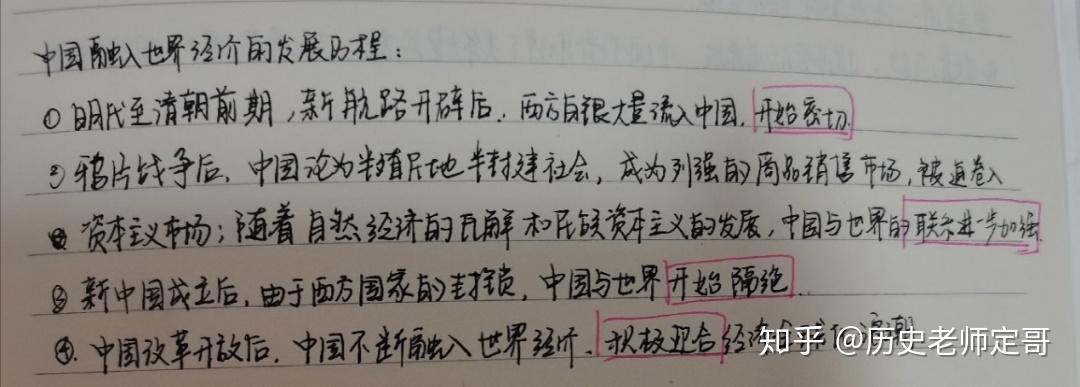 中国融入世界经济的发展历程：
①明代至清朝前期，新航路开辟后，西方白银大量流入中国，开始密切
②鸦片战争后，中国沦为半殖民地半封建社会，成为列强的商品销售市场，被迫卷入
资本主义市场；随着自然经济的瓦解和民族资本主义的发展，中国与世界的联系进一步加强.
③新中国成立后，由于西方国家的封锁，中国与世界开始隔绝.
④.中国改革开放后，中国不断融入世界经济，积极迎合经济
知乎 @历史老师定哥